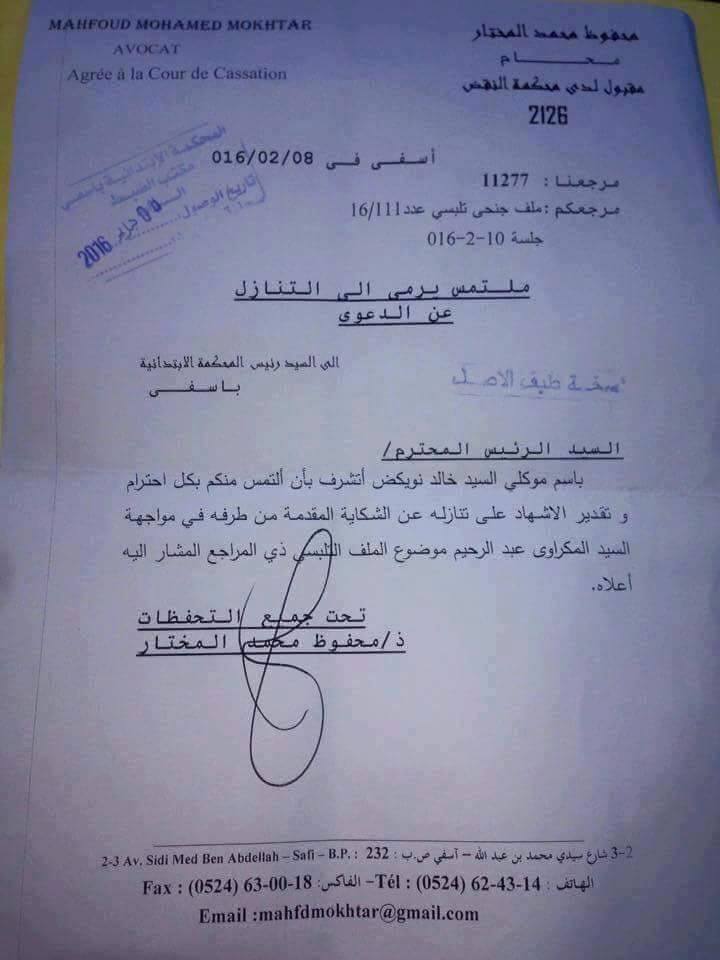 MAHFOUD MOHAMED MOKHTAR
AVOCAT
Agrée à la Cour de Cassation
محفوظ محمد المختار
محام
مقبول لدى محكمة النقض
2126
أسفى فى 016/02/08
المحكمة الابتدائية باسفي
مكتب الضبط
تاريخ الوصول
2016
مرجعنا: 11277
مرجعكم: ملف جنحى تلبسي عدد 16/111
جلسة 10-2-016
ملتمس يرمى الى التنازل
عن الدعوى
الى السيد رئيس المحكمة الابتدائية
باسفى
نسخة طبق الاصل
السيد الرئيس المحترم/
باسم موكلي السيد خالد نويكض أتشرف بأن ألتمس منكم بكل احترام
و تقدير الاشهاد على تنازله عن الشكاية المقدمة من طرفه في مواجهة
السيد المكراوى عبد الرحيم موضوع الملف التلبسي ذي المراجع المشار اليه
أعلاه.
تحت جميع التحفظات
ذ/محفوظ محمد المختار
2-3 Av. Sidi Med Ben Abdellah – Safi – B.P. : 232 : 3-2 شارع سيدي محمد بن عبد الله – آسفي ص.ب
Fax : (0524) 63-00-18 :الفاكس –Tél : (0524) 62-43-14 : الهاتف
Email :mahfdmokhtar@gmail.com